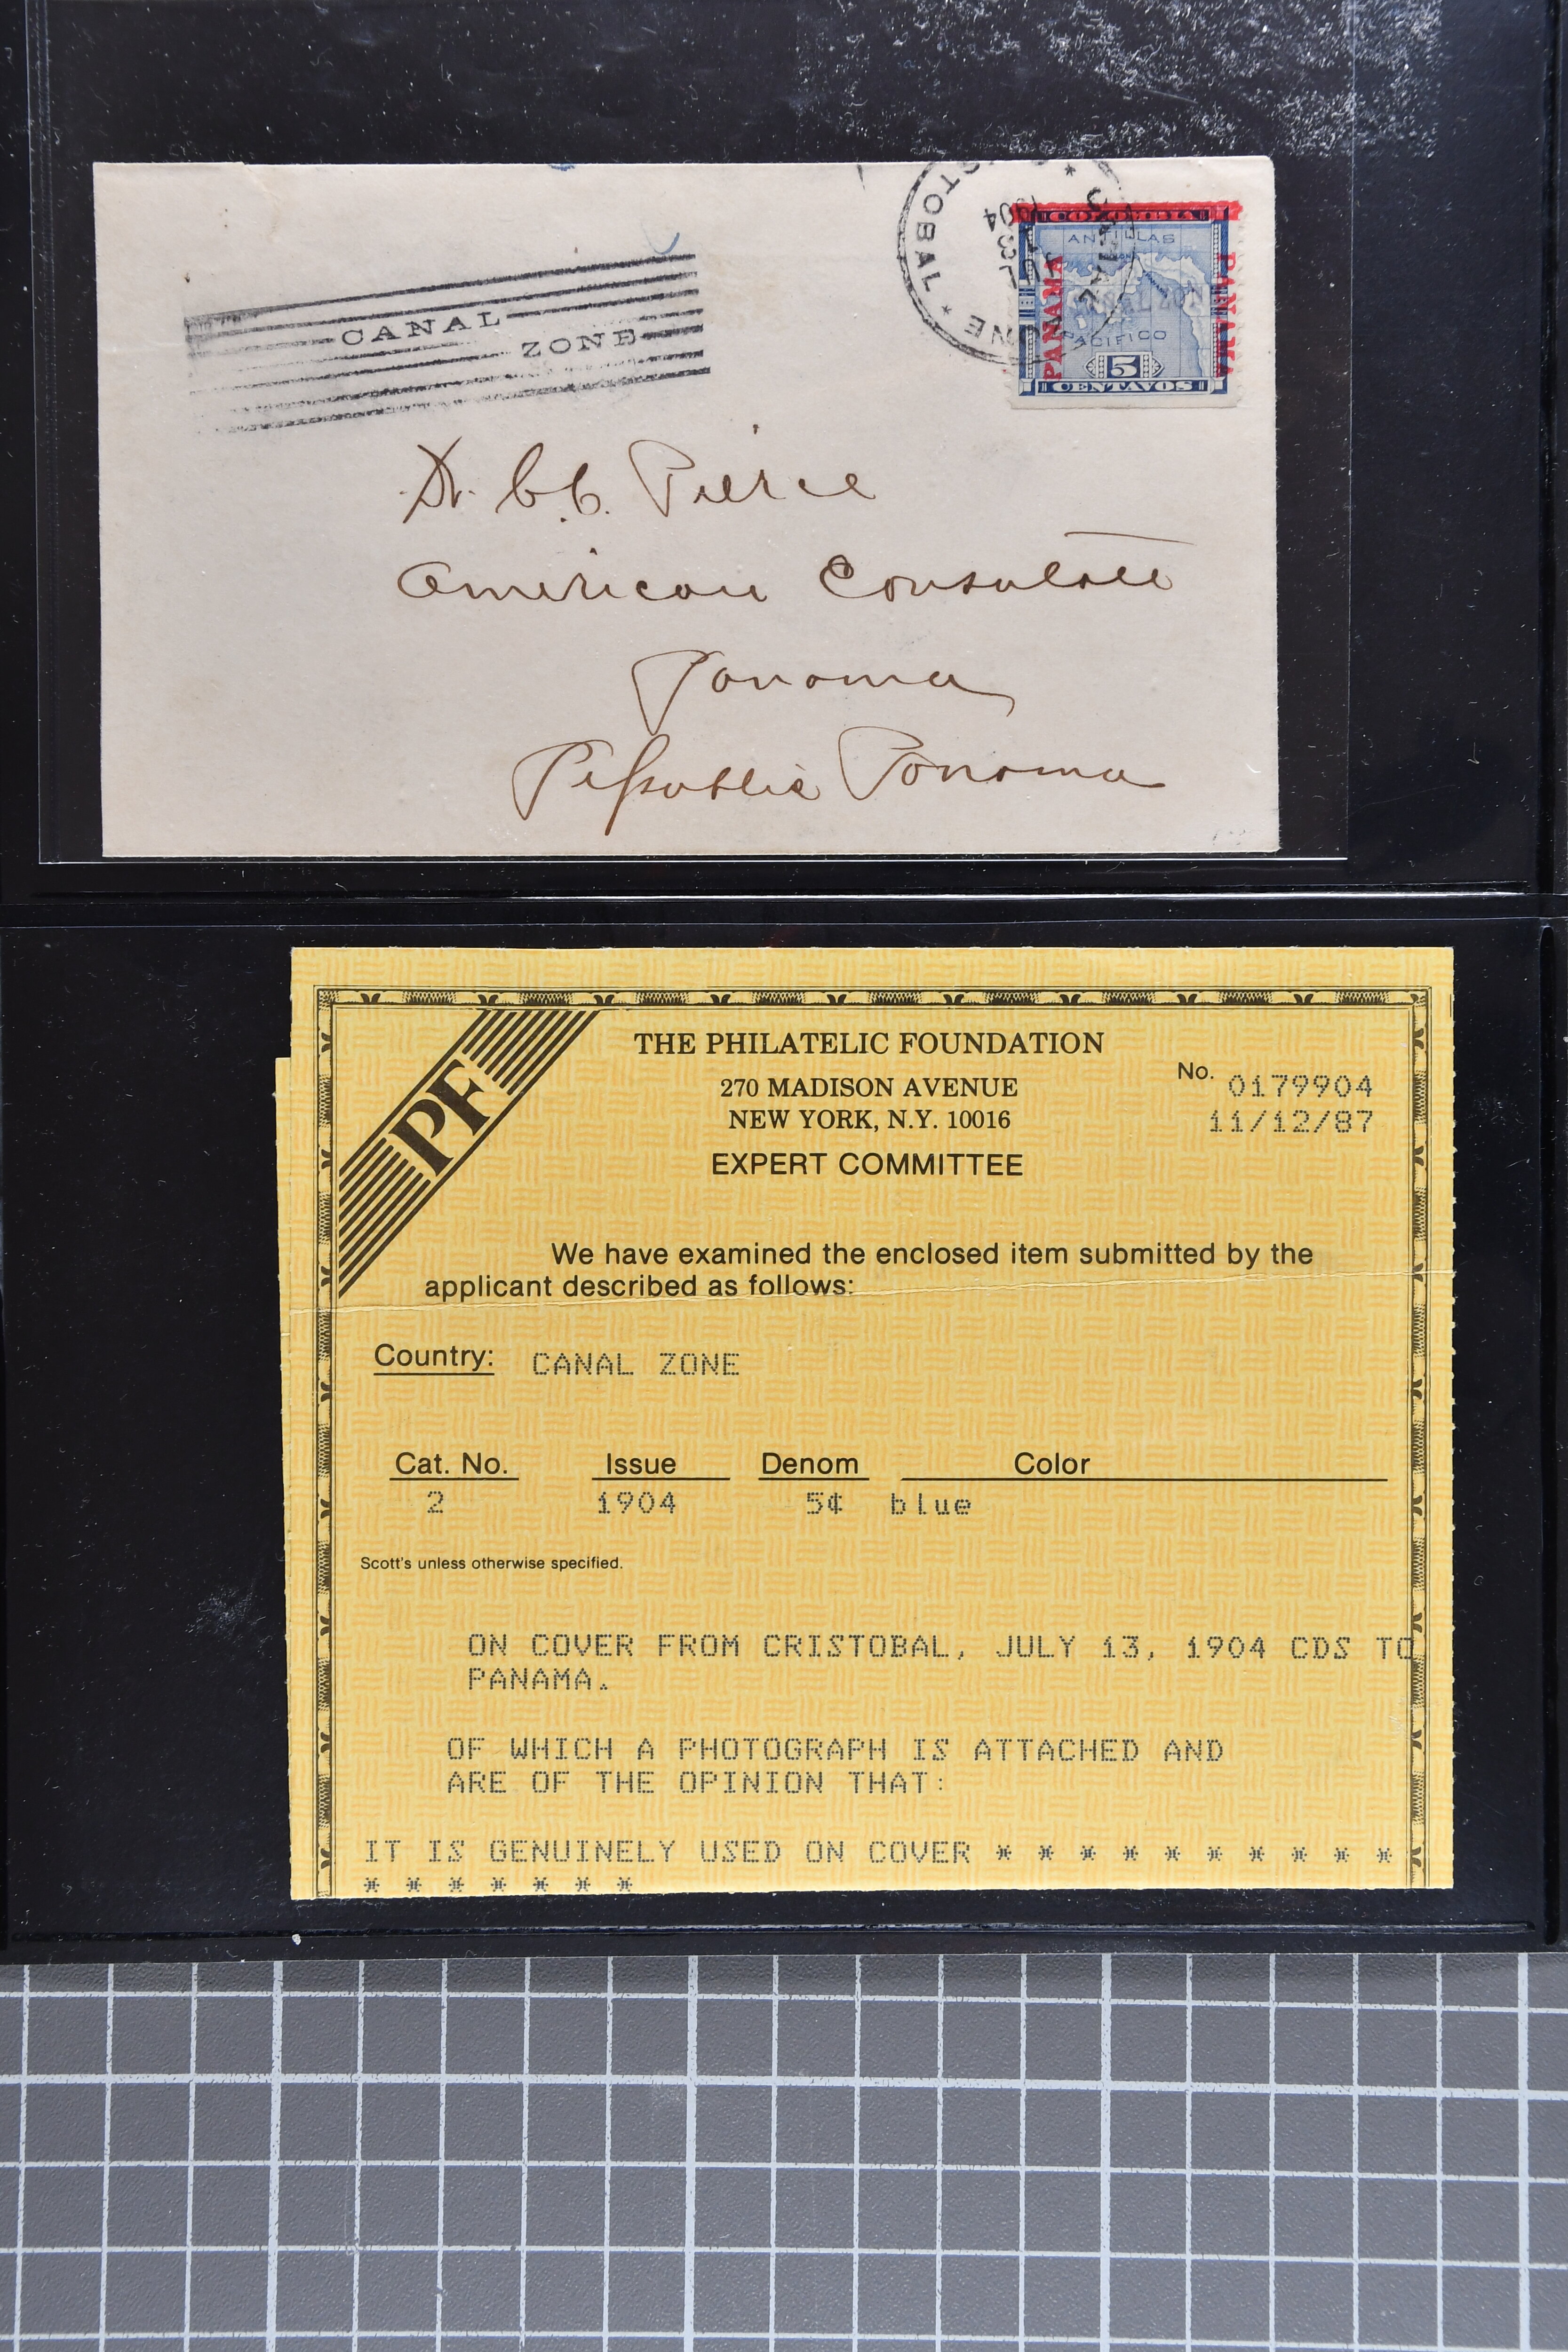 CANAL
ZONE
CRISTOBAL * CANAL ZONE *
JUL
13
1904
COLOMBIA
ANTILLAS
PANAMA
PANAMA
CANAL ZONE
PACIFICO
5
CENTAVOS
Dr. C.C. Pierce
American Consulate
Panama
Republic Panama
PF
THE PHILATELIC FOUNDATION
270 MADISON AVENUE
NEW YORK, N.Y. 10016
EXPERT COMMITTEE
No. 0179904
11/12/87
We have examined the enclosed item submitted by the
applicant described as follows:
Country: CANAL ZONE
Cat. No. Issue Denom Color
2 1904 5¢ blue
Scott's unless otherwise specified.
ON COVER FROM CRISTOBAL, JULY 13, 1904 CDS TO
PANAMA.
OF WHICH A PHOTOGRAPH IS ATTACHED AND
ARE OF THE OPINION THAT:
IT IS GENUINELY USED ON COVER * * * * * * * * * *
* * * * * * *